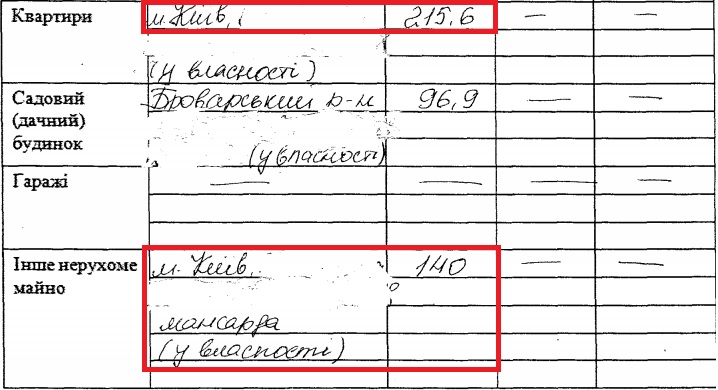 Квартири м.Київ, 215,6 — —
(у власності)
Садовий Броварський р-н 96,9 — —
(дачний)
будинок
(у власності)
Гаражі — — — —
Інше нерухоме м. Київ, 140 — —
майно
мансарда
(у власності)